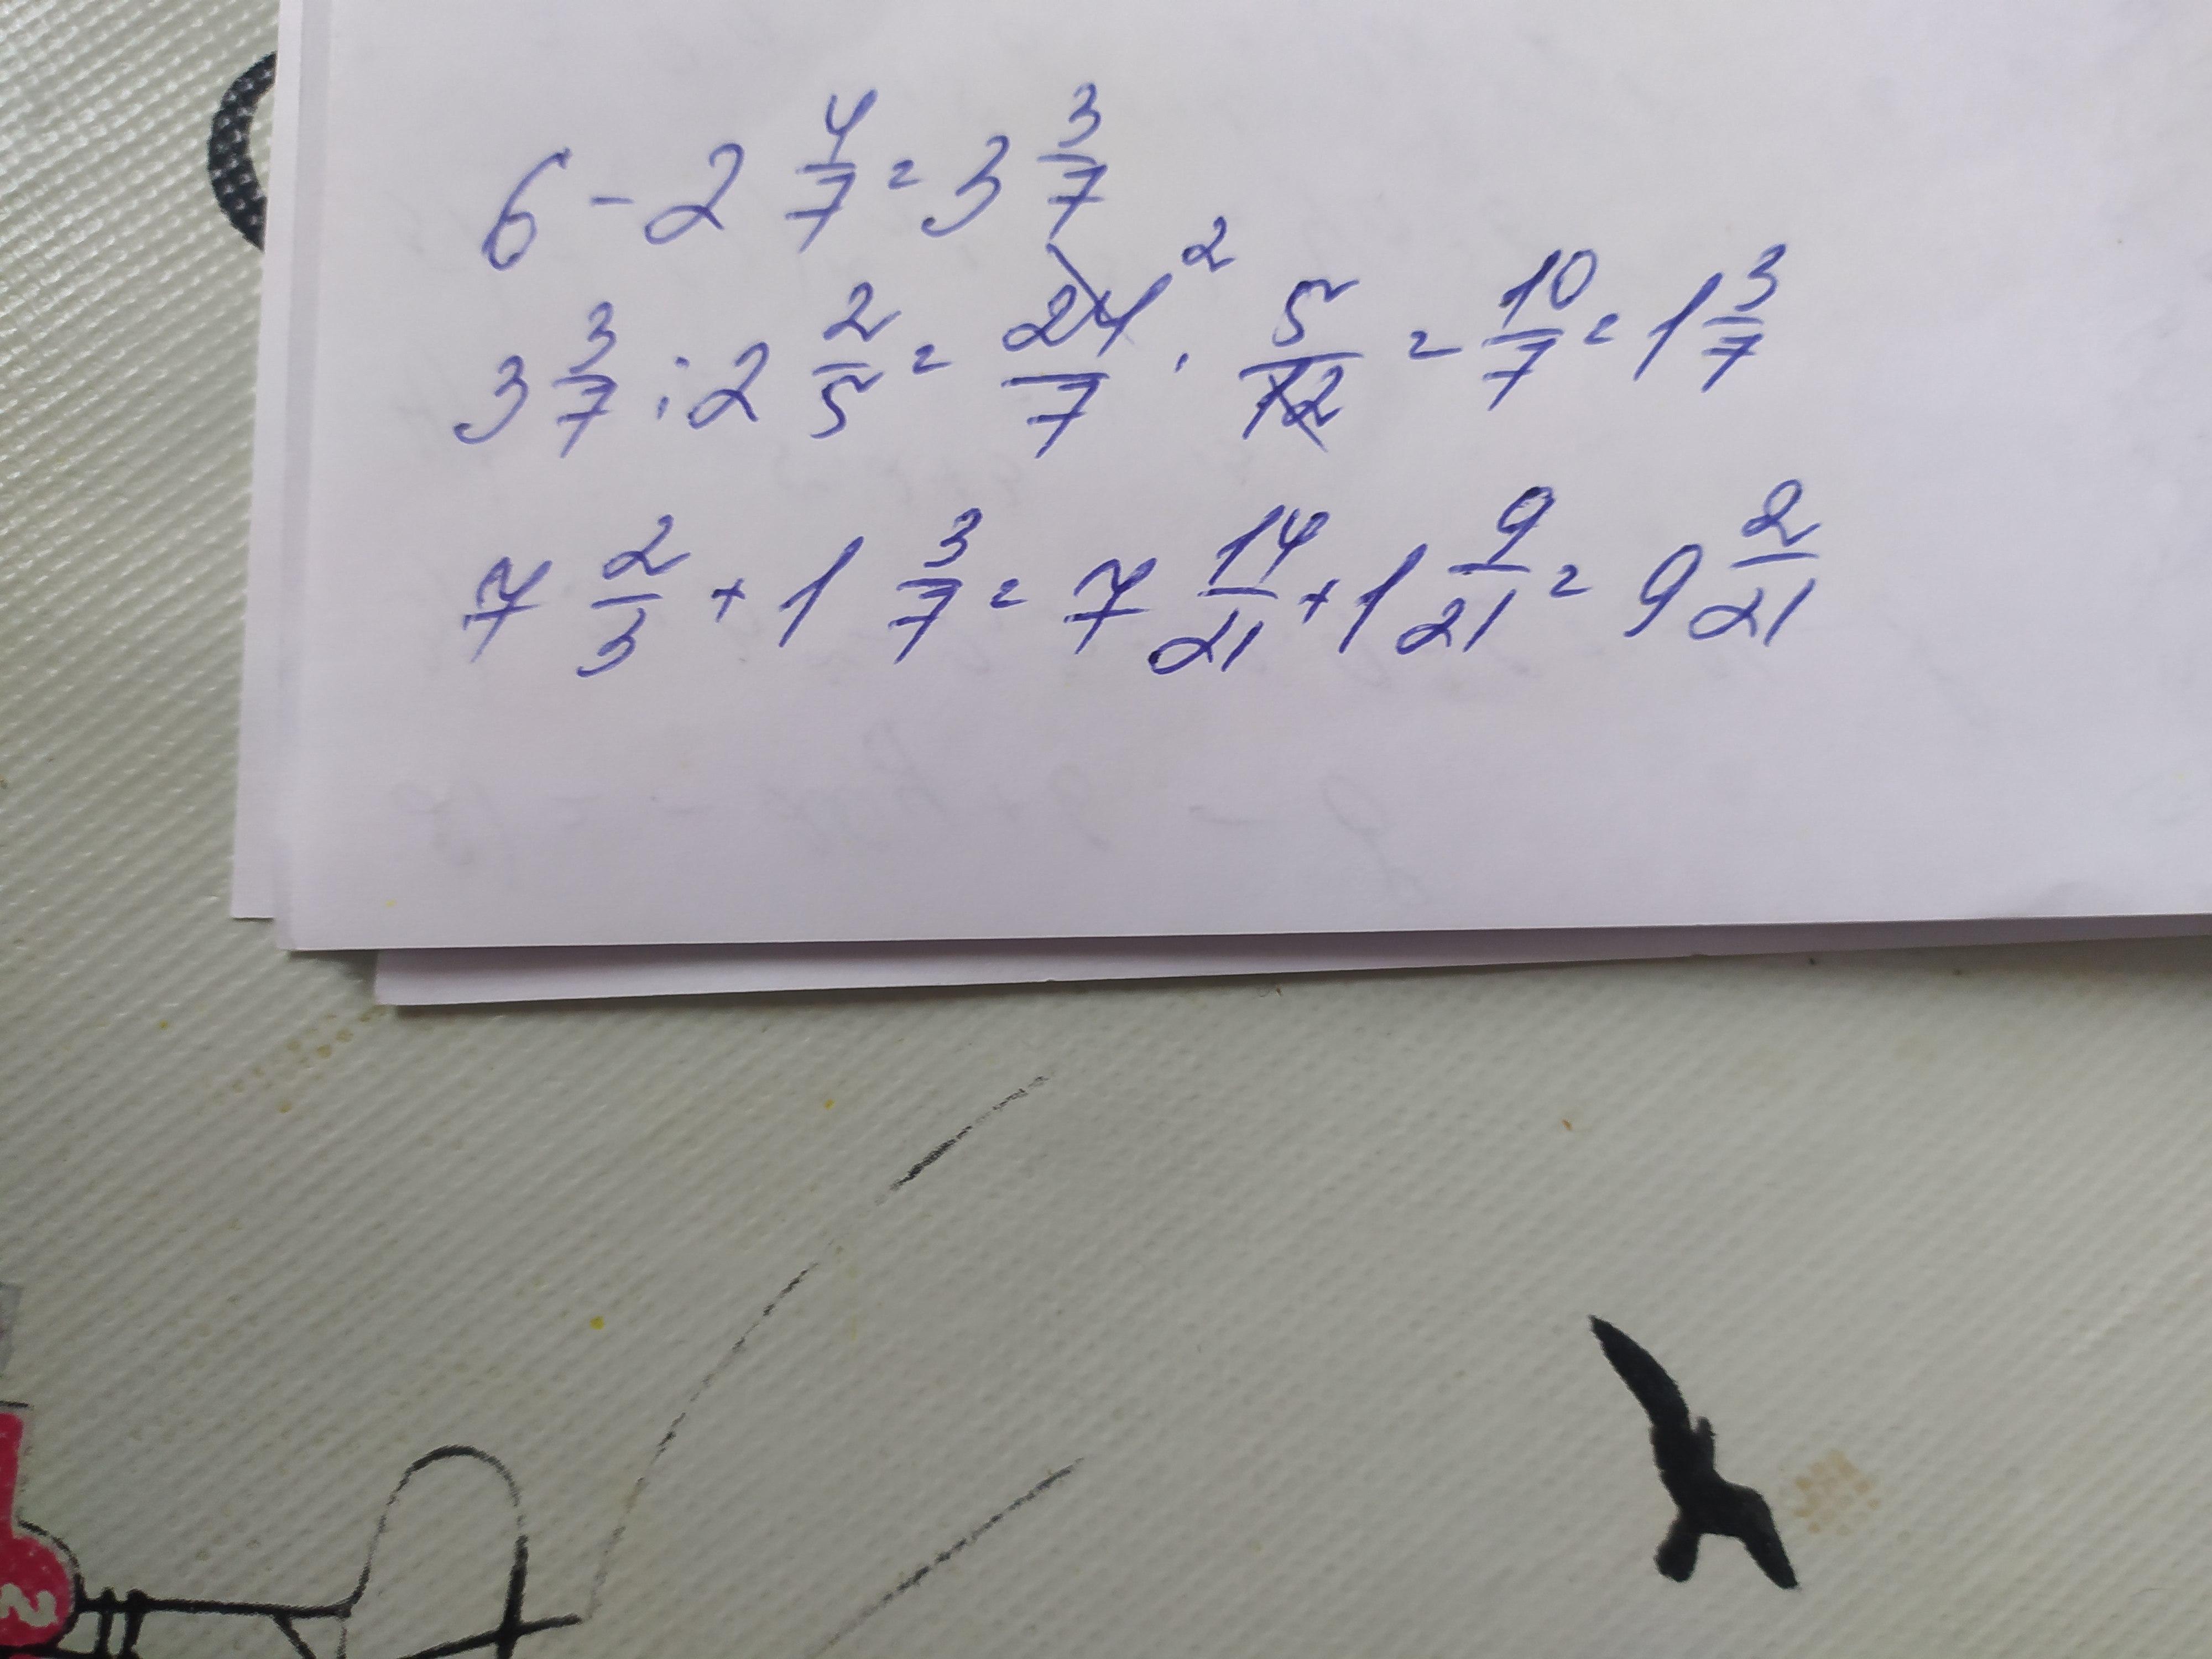 6 - 2 4/7 = 3 3/7
3 3/7 : 2 2/5 = 24/7 ² · 5/12 = 10/7 = 1 3/7
7 2/3 + 1 3/7 = 7 14/21 + 1 9/21 = 9 2/21